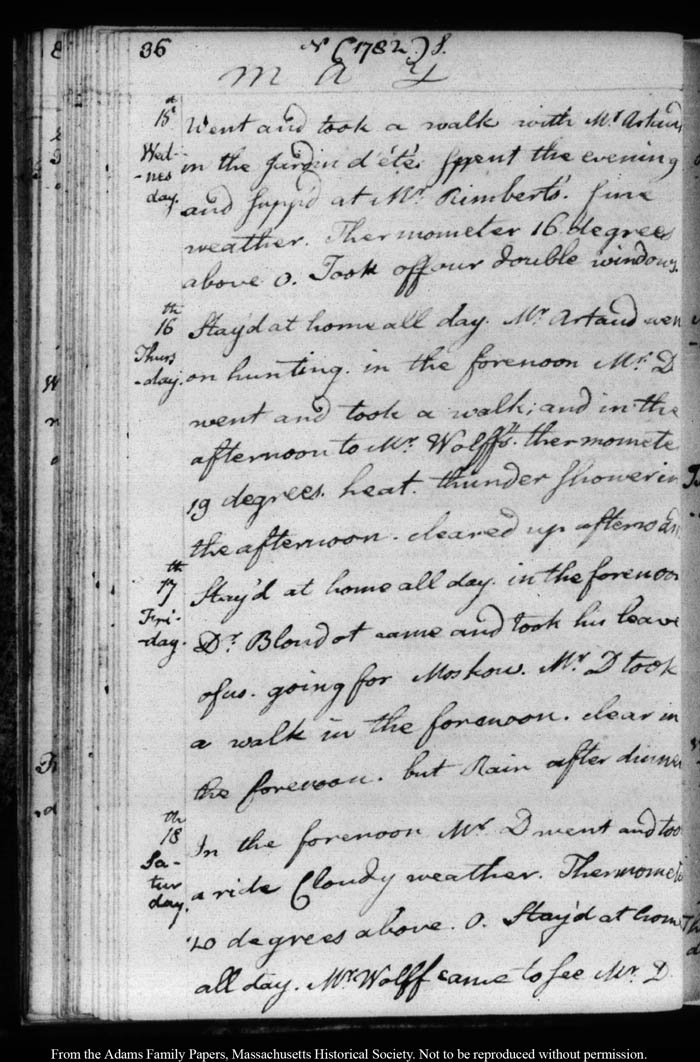 36 N (1782) S.
MAY
15th Wednesday. Went and took a walk with Mr. Artaud
in the jardin d'été. Spent the evening
and supp'd at Mr. Rimbert's. fine
weather. Thermometer 16 degrees
above 0. Took off our double windows.
16th Thursday. Stay'd at home all day. Mr. Artaud wen
on hunting. in the forenoon Mr. D
went and took a walk; and in the
afternoon to Mr. Wolff's. thermomete
19 degrees. heat. thunder shower in
the afternoon. cleared up afterward
17th Friday. Stay'd at home all day. in the forenoo
Dr. Bloudot came and took his leave
of us. going for Moskow. Mr. D took
a walk in the forenoon. clear in
the forenoon. but Rain after dinner
18th Saturday. In the forenoon Mr. D went and too
a ride Cloudy weather. Thermomete
20 degrees above. 0. Stay'd at home
all day. Mr. Wolff came to see Mr. D.
From the Adams Family Papers, Massachusetts Historical Society. Not to be reproduced without permission.